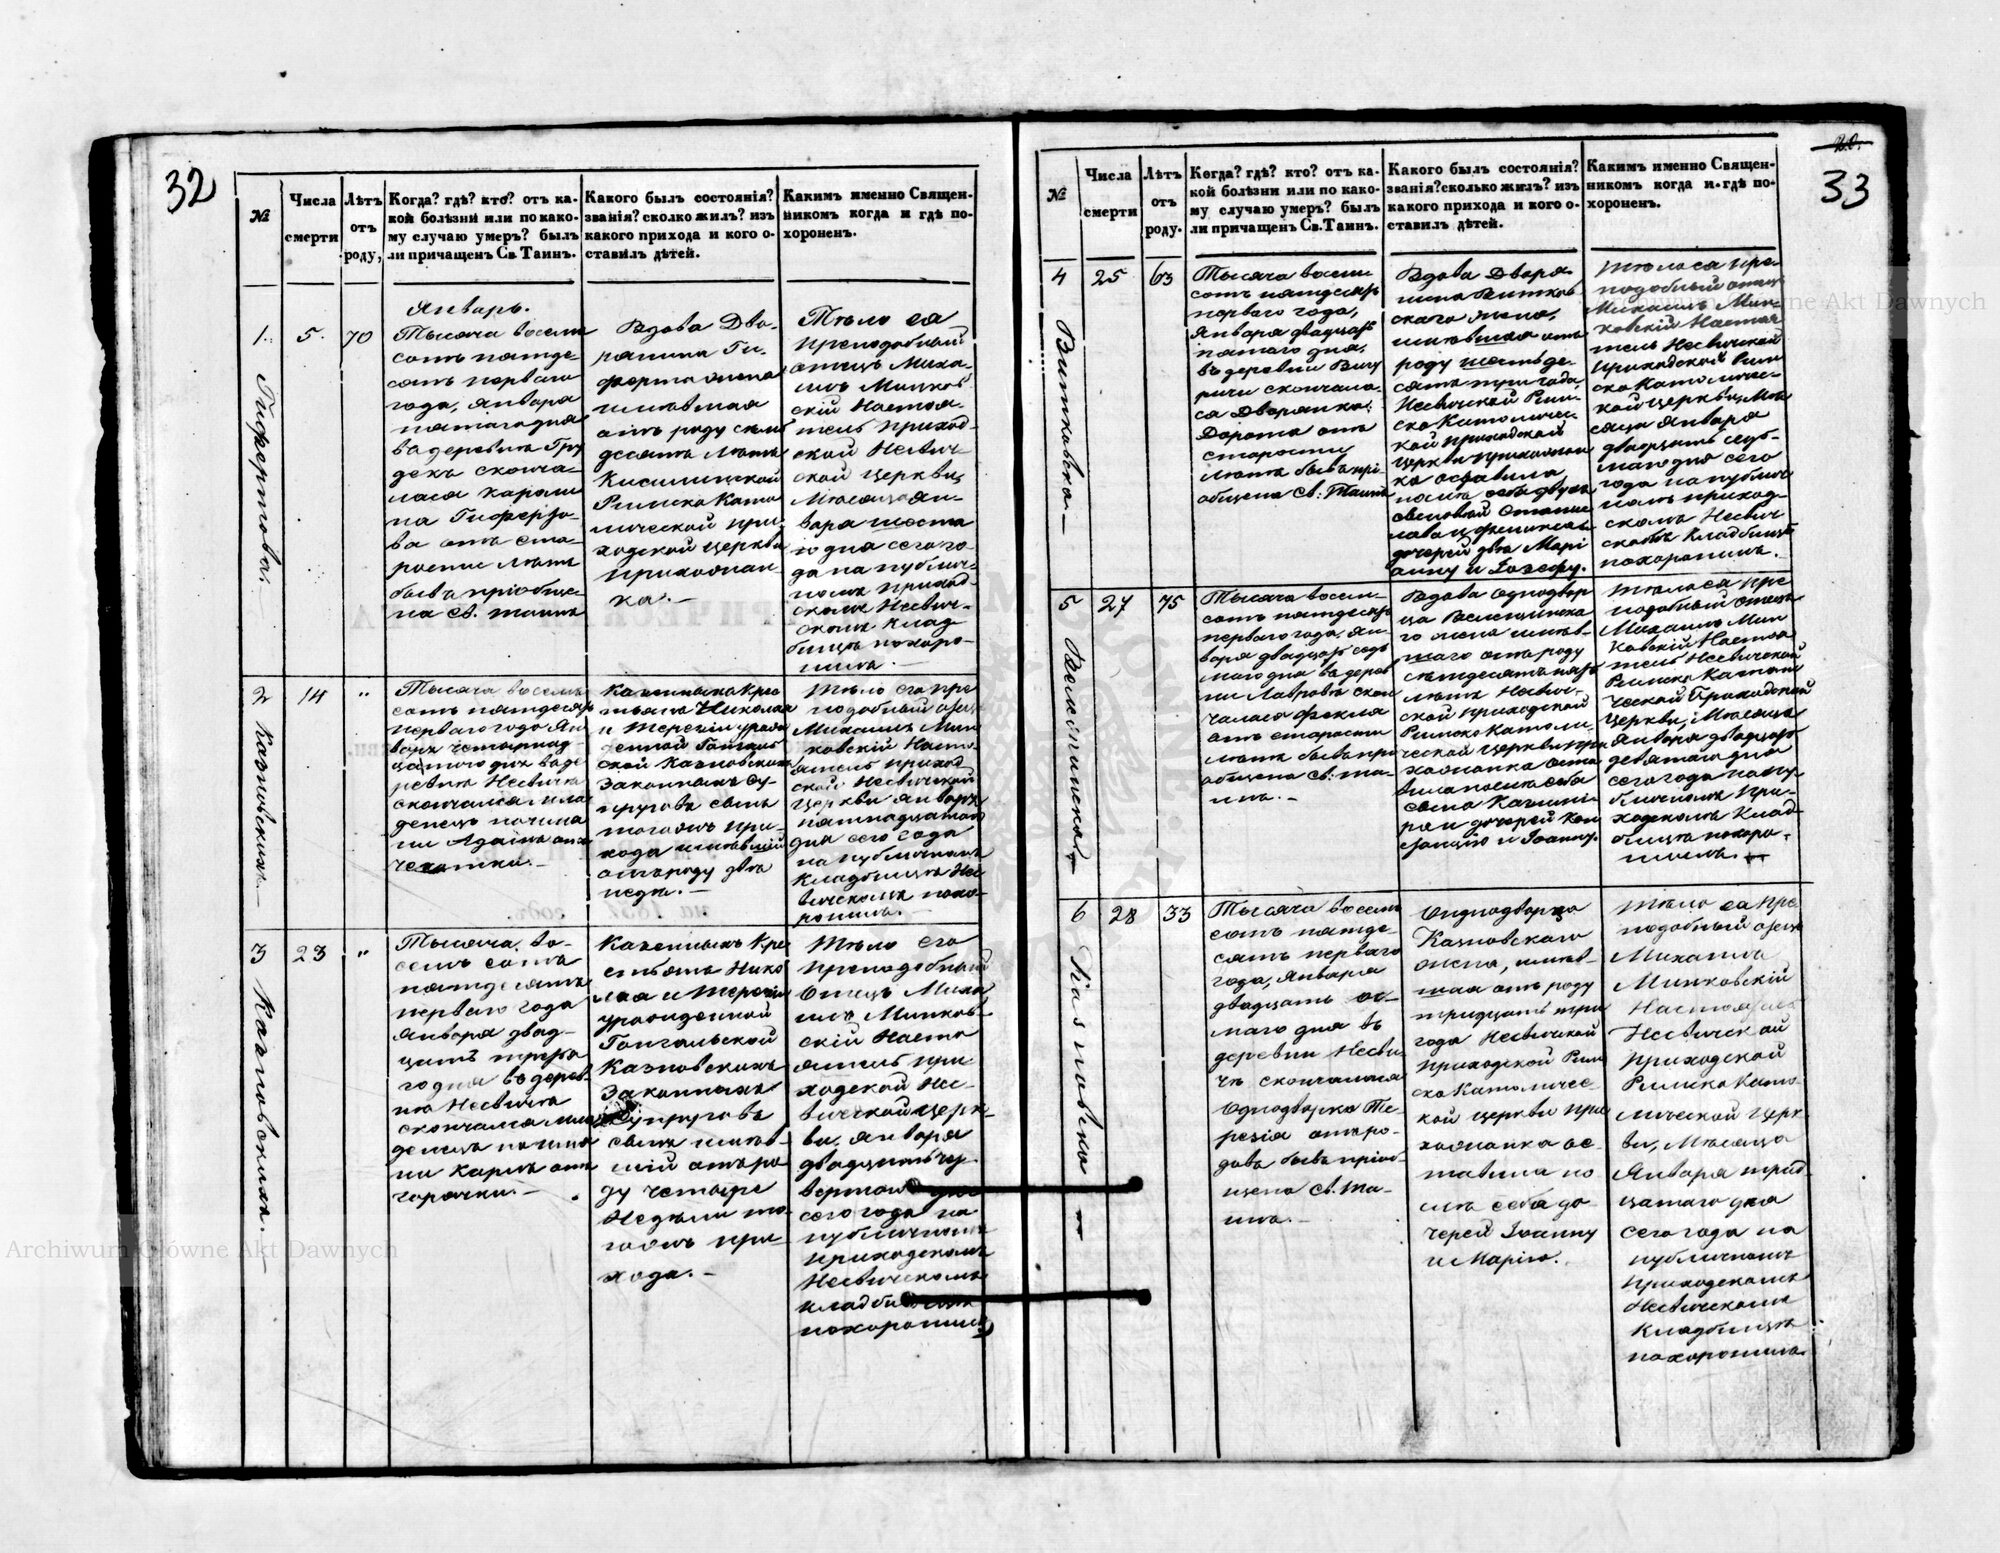 32
№
Числа
смерти
Лѣтъ
отъ
роду,
Когда? гдѣ? кто? отъ ка-
кой болѣзни или по како-
му случаю умеръ? былъ
ли причащенъ Св. Таинъ.
Какого былъ состоянія?
званія? сколко жилъ? изъ
какого прихода и кого о-
ставилъ дѣтей.
Каким именно Священ-
ником когда и гдѣ по-
хороненъ.
1.
5.
70
Январь.
Тысяча восемь
сотъ пятьде
сятъ перваго
года, Января
пятаго дня
въ деревнѣ Гру
декъ сконча
лася Кароли
на
ва отъ ста
рости лѣтъ
бывъ пріобще
на Св. Таинъ
Вдова Дво-
рянина Ги-
ферта жена
имѣвшая
отъ роду семь
десятъ лѣтъ
Киселинской
Римско Като
лической при
ходской церкви
прихожан
ка.—
Тѣло ея
преподобный
отецъ Миха-
илъ Минков
скій Настоя-
тель приход
ской Несвич-
ской церкви,
Мѣсяца Ян-
варя шеста
го дня сего го-
да на публич-
номъ приход-
скомъ Несвич-
скомъ клад
бищѣ похоро-
нилъ.—
2
Казновскихъ.
14
"
Тысяча восемь
сотъ пятьдесятъ
перваго года Ян
варя четырнад-
цатаго дня в де
ревнѣ Несвичѣ
скончался мла
денецъ по имя
ни Адамъ отъ
чахотки.—
Казенныхъ Кре
стьянъ Николая
и Терезіи урож
денной Гонталь
ской Казновскихъ
Законныхъ су-
пруговъ сынъ
тогожъ при-
хода имѣвшій
отъ роду двѣ
недѣл.—
Тѣло его пре
подобный отецъ
Михаилъ Мин
ковскій Насто-
ятель приход
ской Несвичской
церкви Января
пятнадцатаго
дня сего года
на публичномъ
кладбищѣ Нес
вичскомъ похо-
ронилъ.—
3
Казновскихъ.—
23
"
Тысяча во-
семь сотъ
пятьдесятъ
перваго года
Января двад-
цать треть
го дня въ дерев
нѣ Несвичѣ
скончался мла
денецъ по имя
ни Карлъ отъ
горячки.—
Казенныхъ Кре
стьянъ Нико
лая и Терезіи
урожденной
Гонтальской
Казновскихъ
Законныхъ
супруговъ
сынъ имѣв-
шій отъ ро
ду четыре
Недѣли то-
гожъ при-
хода.—
Тѣло его
преподобный
Отецъ Миха
илъ Минков-
скій Насто
ятель при
ходской Нес-
вичской церк-
ви, Января
двадцать чет
вертаго дня
сего года на
публичномъ
приходскомъ
Несвичскомъ
кладбищѣ
похоронилъ
33
№
Числа
смерти
Лѣтъ
отъ
роду.
Когда? гдѣ? кто? отъ ка-
кой болѣзни или по како-
му случаю умеръ? былъ
ли причащенъ Св. Таинъ.
Какого былъ состоянія?
званія? сколько жилъ? изъ
какого прихода и кого о-
ставилъ дѣтей.
Каким именно Священ-
ником когда и гдѣ по-
хороненъ.
4
Витковска.—
25
63
Тысяча восем
сотъ пятьдесятъ
перваго года,
Января двадцать
пятаго дня,
въ деревни
скончала
ся Дворянка
Дорота отъ
старости
лѣтъ бывъ прі
общена Св. Таинъ
Вдова Дворя
нина Витков
скаго жена,
имѣвшая отъ
роду шестьде
сятъ три года,
Несвичской Рим
ско Католичес
кой приходской
церкви прихожан
ка оставила
послѣ себя двухъ
сыновей Станис
лава и
дочерей двѣ Марі
анну и Іозефу.
Тѣло ея пре
подобный отецъ
Михаилъ Мин-
ковскій Настоя
тель Несвичской
приходской Рим
ско Католичес-
кой церкви, Мѣ
сяца Января
двадцать седь-
маго дня сего
года на публич
номъ приход-
скомъ Несвич
скомъ кладбищѣ
похоронилъ.
5
27
75
Тысяча восем-
сотъ пятьдесятъ
перваго года, Ян
варя двадцать седь
маго дня въ дерев
ни Лавровъ скон
чалася Фекля
отъ старости
лѣтъ бывъ прі
общена Св. Та-
инъ.—
Вдова однодвор
ца
го жена имѣв-
шаго отъ роду
семдесятъ пять
лѣтъ Несвич-
ской приходской
Римско Католи
ческой церкви при
хожанка оста
вила послѣ себя
сына Казимі-
ра и дочерей Кон
станцію и Іоанну.
Тѣло ея пре
подобный отецъ
Михаилъ Мин
ковскій Настоя
тель Несвичской
Римско Католи
ческой Приходской
церкви, Мѣсяца
Января двадцать
девятаго дня
сего года на пу-
бличномъ При-
ходскомъ Клад-
бищѣ похоро-
нилъ.
6
Казновска
28
33
Тысяча восемь
сотъ пятьде-
сятъ перваго
года, Января
двадцать ос-
маго дня въ
деревни Несви-
чѣ скончалася
Однодворка Те-
резія отъ ро-
довъ бывъ пріоб
щена Св. Та-
инъ.—
Однодворца
Казновскаго
жена, имѣв-
шая отъ роду
тридцать три
года Несвичской
приходской Рим
ско Католичес
кой церкви при
хожанка ос-
тавила по
слѣ себя до-
черей Іоанну
и Марію.
Тѣло ея пре-
подобный отецъ
Михаилъ
Минковскій
Настоятель
Несвичской
приходской
Римско Като-
лической церк
ви, Мѣсяца
Января трид-
цатаго дня
сего года на
публичномъ
приходскомъ
Несвичскомъ
кладбищѣ
похоронилъ.
Archiwum Główne Akt Dawnych
Archiwum Główne Akt Dawnych